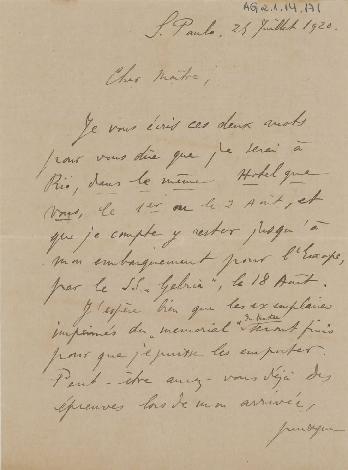 AG 2.1.14.171
S. Paulo, 25 Juillet 1920.
Cher Maître,
Je vous écris ces deux mots
pour vous dire que je serai à
Rio, dans le même Hotel que
vous, le 1er ou le 2 Août, et
que je compte y rester jusqu'à
mon embarquement pour l'Europe,
par le S.S. "Gelria", le 18 Août.
J'espère bien que les exemplaires
imprimés du memorial
seront finis
pour que je puisse les emporter.
Peut-être aurez-vous déjà des
épreuves lors de mon arrivée,